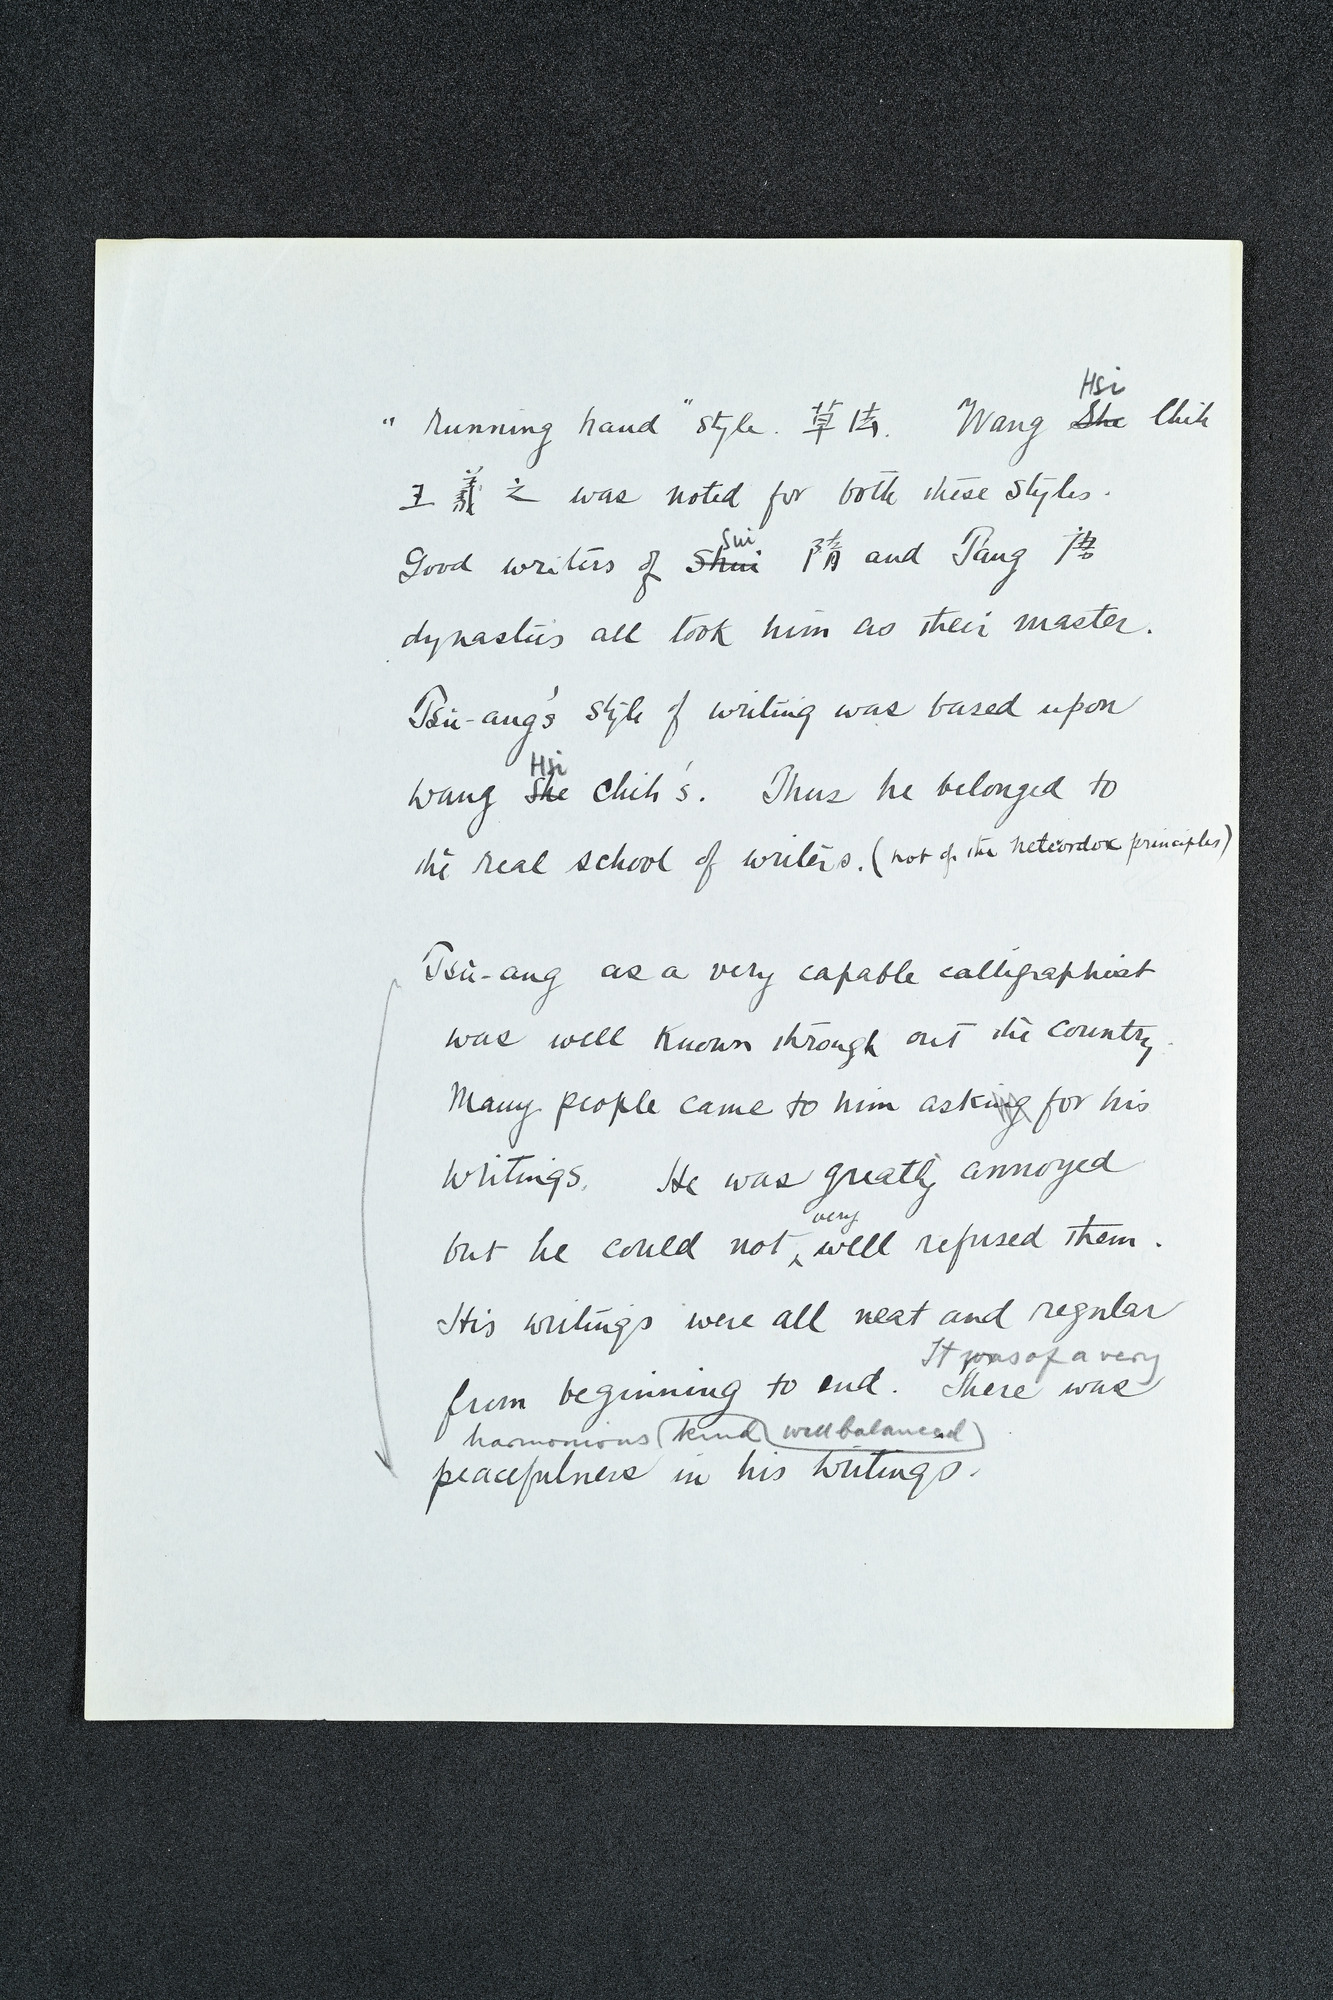 Hsi
"running hand" style. 草法. Wang She Chih
王羲之 was noted for both these styles.
Sui
Good writers of Shui 隋 and Tang 唐
dynasties all took him as their master.
Tsu-ang's style of writing was based upon
Hsi
Wang She Chih's. Thus he belonged to
the real school of writers. (not of the heterdox principles)
Tsu-ang as a very capable calligraphist
was well known through out the country.
Many people came to him asking for his
writings. He was greatly annoyed
very
but he could not well refused them.
His writings were all neat and regular
It was of a very
from beginning to end. There was
harmonious kind well balanced
peacefulness in his writings.